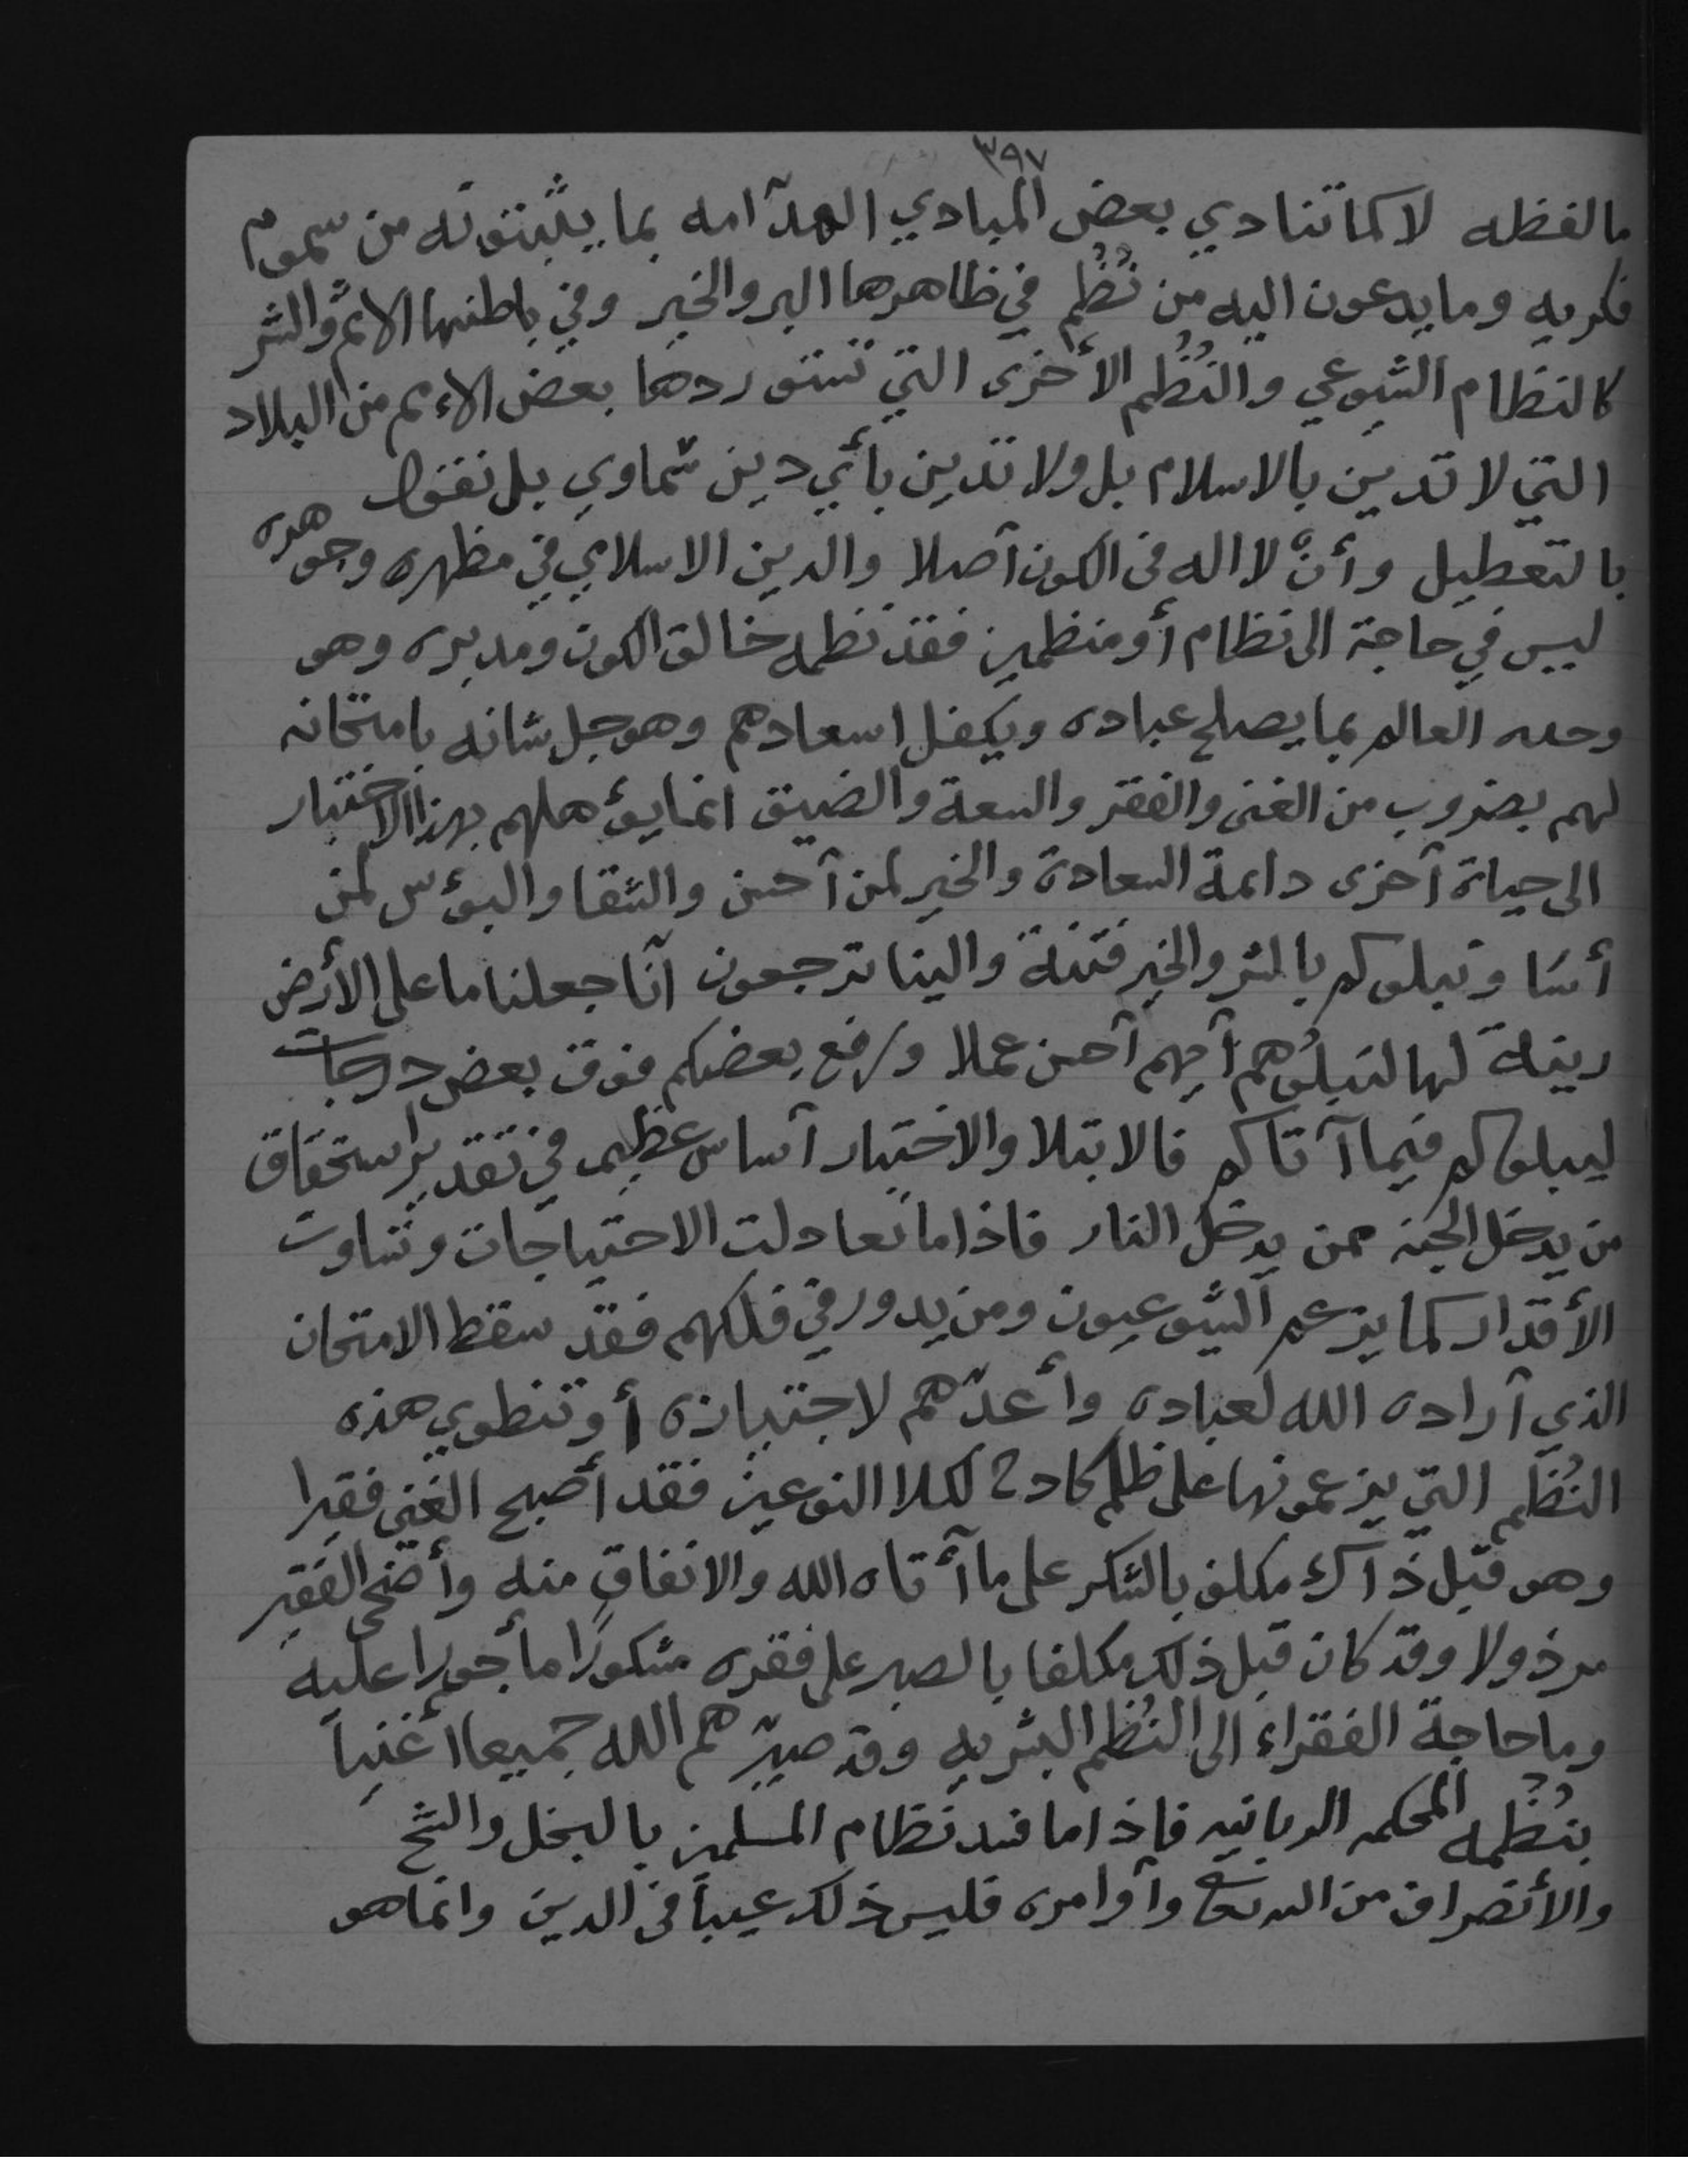 ٣٩٧
مالفظه لا كما تنادي بعض المبادي الهدآمه بما يثبتونه من سموم
فكريه وما يدعون اليه من نُظُم في ظاهرها البر والخير وفي باطنها الاثم والشر
كالنظام الشيوعي والنُظُم الأخرى التي تستوردها بعض الامم من البلاد
التي لا تدين بالاسلام بل ولا تدين بأي دين سماوي بل نقول
بالتعطيل وأنْ لا اله في الكون آصلا والدين الاسلامي في مظهره وجوهره
ليس في حاجة الى نظام أو منظمين فقد نظمه خالق الكون ومدبره وهو
وحده العالم بما يصلح عباده ويكفل اسعادهم وهو جل شانه بامتحانه
لهم بضروب من الغنى والفقر والسعة والضيق انما يؤهلهم بهذا الاختبار
الى حياة آخرى دائمة السعادة والخير لمن آحسن والشقا والبؤس لمن
أسَا ونبلوكم بالشر والخير فتنة والينا ترجعون آنا جعلنا ما على الأرض
زينة لها لنبلُوهم آيهم آحسن عملا ورفع بعضكم فوق بعض درجات
ليبلوكم فيما آتاكم فالابتلا والاختبار آساس عظيم في تقدير استحقاق
من يدخل الجنه ممن يدخل النار فاذا ما تعادلت الاحتياجات وتساوت
الأقدار كما يزعم الشيوعيون ومن يدور في فلكهم فقد سقط الامتحان
الذي آراده الله لعباده وأعدّهم لاجتيازه أو تنطوي هذه
النُظُم التي يزعمونها على ظلم لكلا النوعين فقد أصبح الغني فقيرا
وهو قبل ذآك مكلف بالشكر على ما آتاه الله والانفاق منه وأضحى الفقير
مرذولا وقد كان قبل ذلك مكلفا بالصبر على فقره مشكورًا مأجورا عليه
وما حاجة الفقراء الى النُظُم البشريه وقد صيّرهم الله جميعا أغنياً
بنُظُمه المحكمه الربانيه فاذا ما فسد نظام المسلمين بالبخل والشح
والأنصراف من الله تعالى وآوامره فليس ذلك عيباً في الدين وانما هو